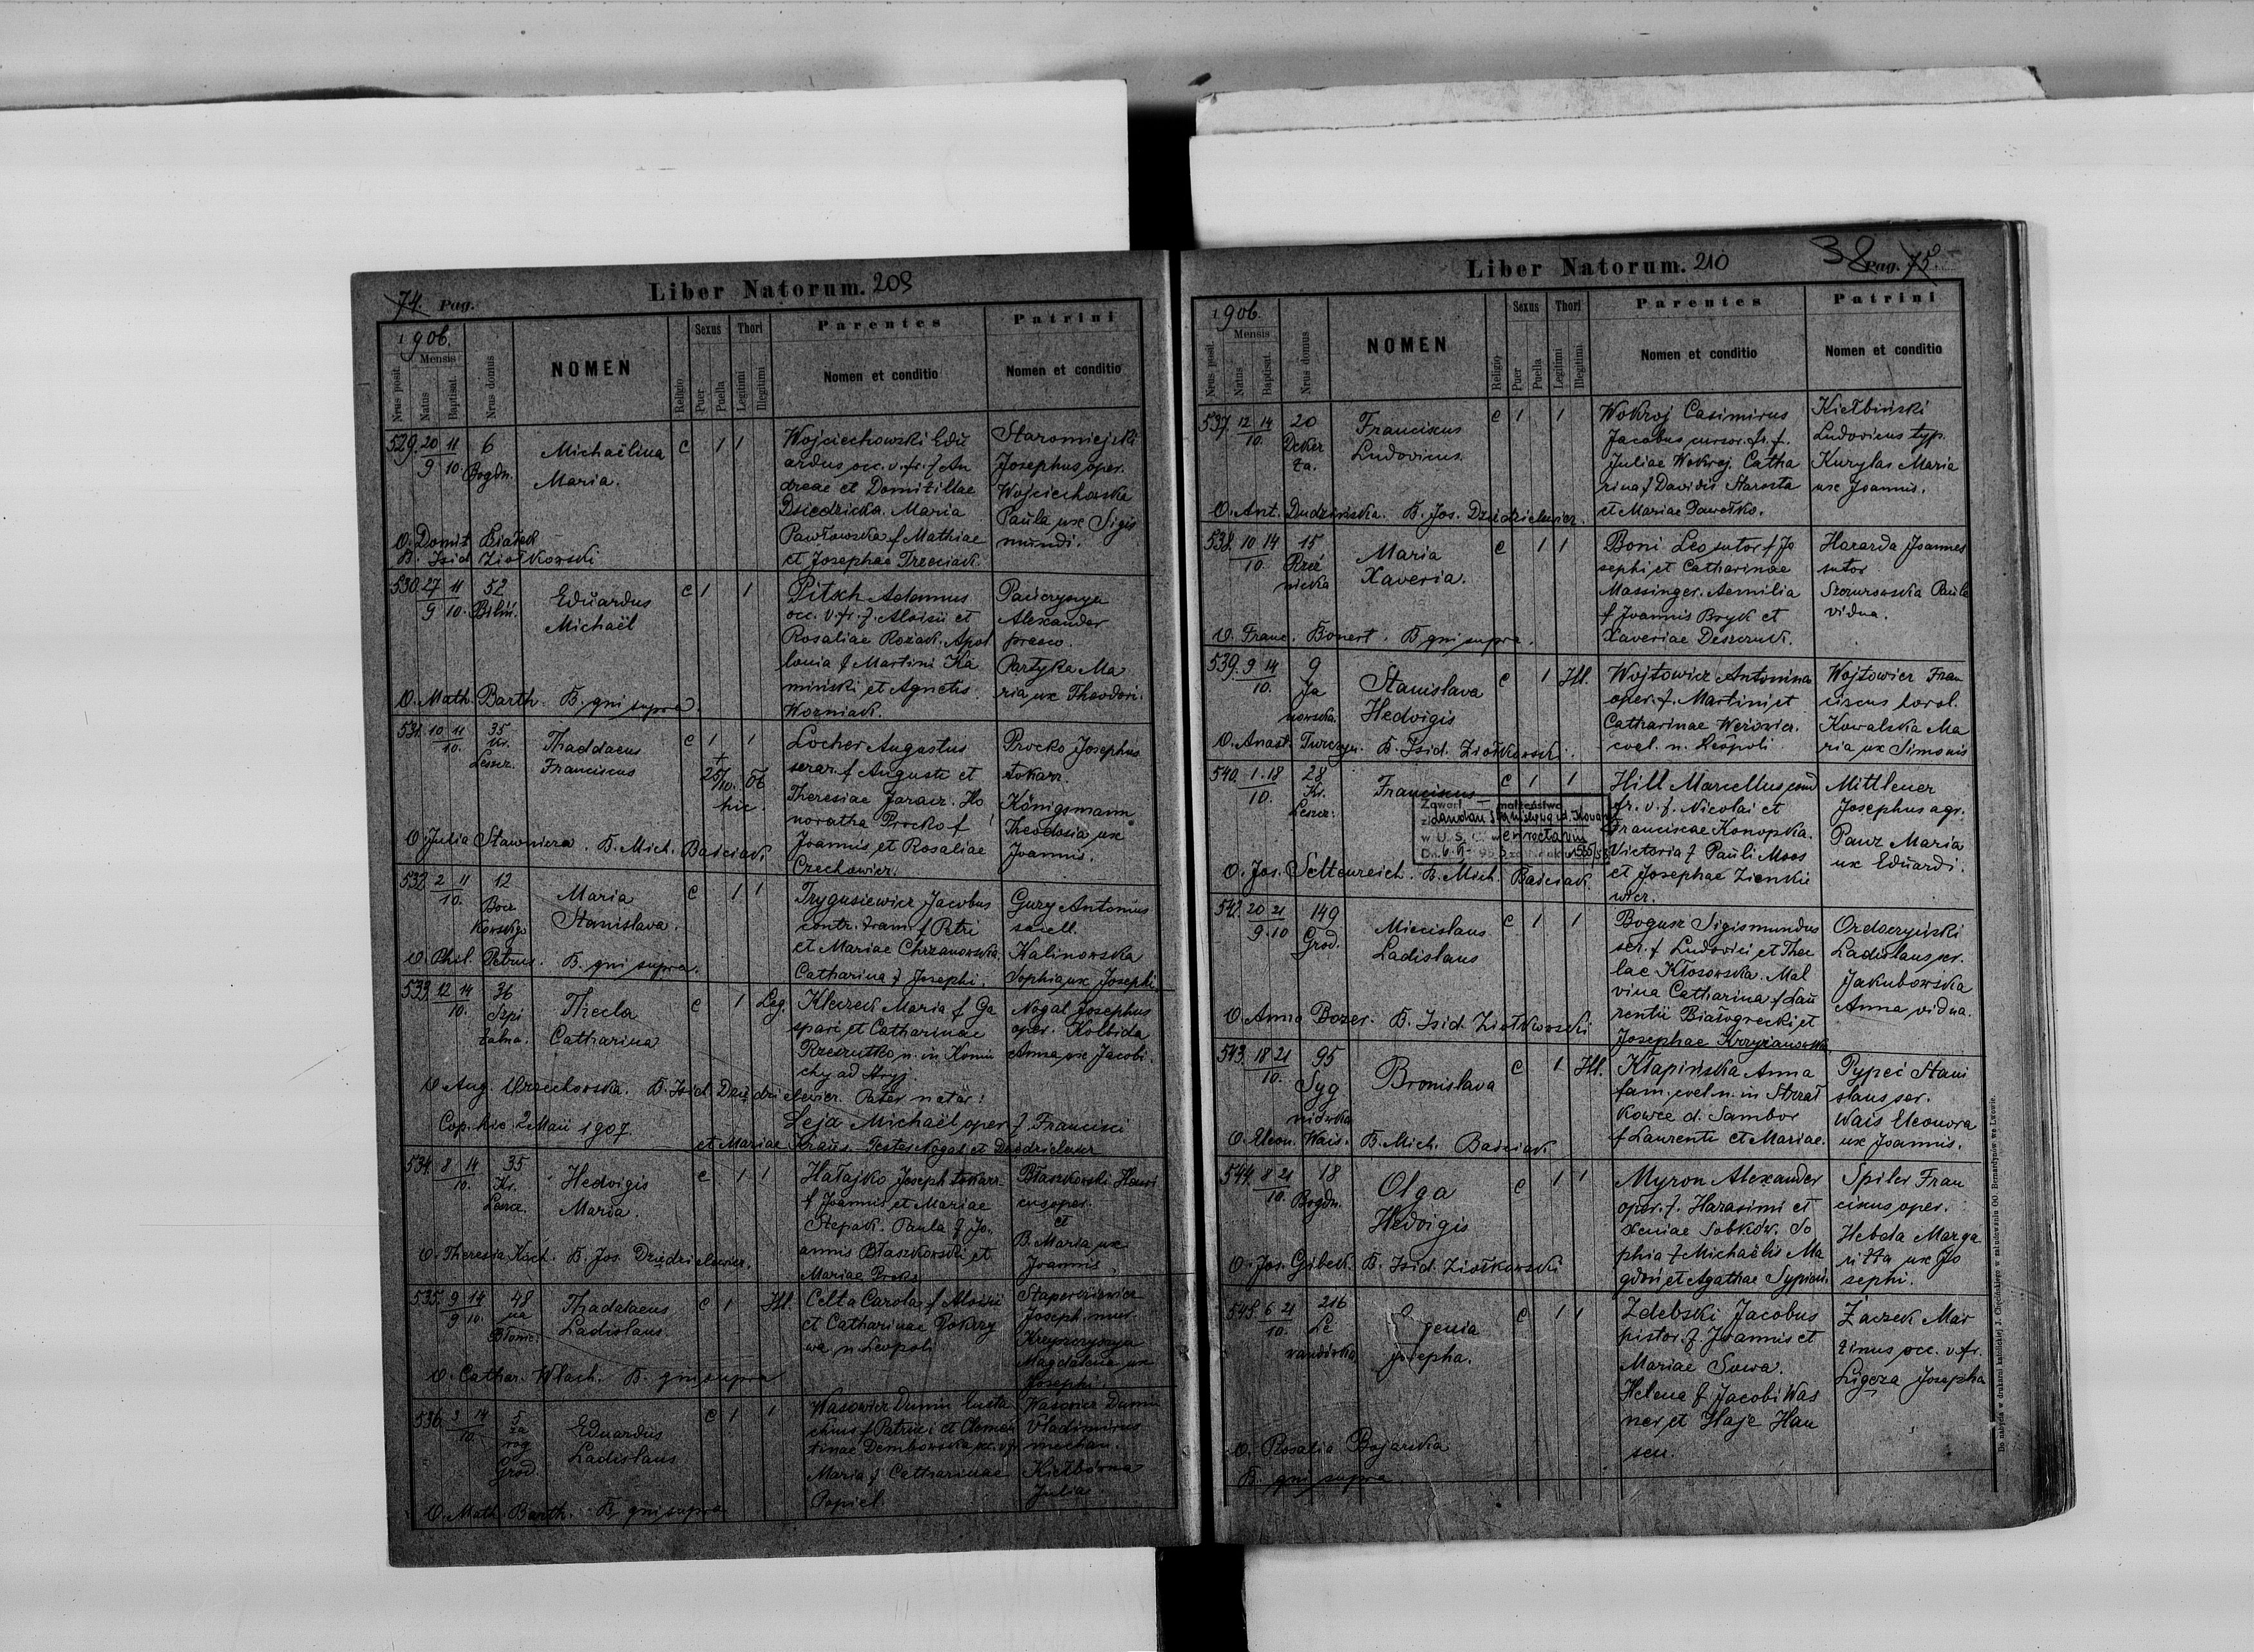 74. Pag.
Liber Natorum. 209
1906.
Mensis
Nrus posit.
Natus
Baptisat.
Nrus domus
NOMEN
Religio
Sexus
Puer
Puella
Thori
Legitimi
Illegitimi
Parentes
Nomen et conditio
Patrini
Nomen et conditio
529. 20 11 6
9 10. Bogdn.
Michaëlina
Maria.
c 1 1
Wojciechowski Edu
ardus occ. v. fr. f An
dreae et Domitillae
Dziedzicka. Maria
Pawłowska f Mathiae
et Josephae Trzeciak.
Staromiejski
Josephus oper.
Wojciechowska
Paula ux Sigis
mundi.
O. Domit.
B. Isid. Ziołkowski
530. 27 11 52
9 10. Biliń.
Eduardus
Michaël
c 1 1
Pitsch Adamus
occ. v. fr. f. Aloisii et
Rosaliae Rozak. Apol
lonia f Martini Ka
miński et Agnetis
Wozniak.
Alexander
praeco.
Partyka Ma
ria ux Theodori.
O. Math. Barth. B. qui supra.
531. 10 11 35
10. Kr.
Leszcz.
Thaddaeus
Franciscus
c 1 1
+
25/10. 06
hic.
Locher Augustus
serar. f Augusti et
Theresiae Jaracz. Ho
noratha Procko f
Joannis et Rosaliae
Czechowicz.
Procko Josephus
tokarz.
Königsmann
Theodosia ux
Joannis.
O. Julia Stawniera. B. Mich. Baściak.
532. 2 11 12
10. Bocz
kowskgo
Maria
Stanislava.
c 1 1
Trygusiewicz Jacobus
contr. tram. f Petri
et Mariae Chrzanowska.
Catharina f Josephi.
Gury Antonius
sacell.
Kalinowska
Sophia ux Josephi
O. Phil. Petrus. B. qui supra.
533. 12 14 36
10. Szpi
talna.
Thecla
Catharina
c 1 Leg.
Kleczek Maria f Ga
spari et Catharinae
Rzeszutko n. in Koniu
chy ad Stryj.
Nogal Josephus
oper. Kolbida
Anna ux Jacobi.
O. Aug. Orzechowska. B. Isid. Dzudzielewicz. Pater natur:
Cop. hic 2 Maii 1907.
Leja Michaël oper f. Francisci
et Mariae Kraus. Testes Nogal et Dzudzielewicz
534. 8 14 35
10. Kr.
Leszcz.
Hedvigis
Maria.
c 1 1
Hałajko Joseph tokarz
f Joannis et Mariae
Stepak. Paula f Jo
annis Błaszkowski et
Mariae Proks
Błaszkowski Henri
cus oper.
et
B. Maria ux
Joannis.
O. Theresia Koch. B. Jos. Dzudzielewicz.
535. 9 14 48
9 10. na
Błonie.
Thaddaeus
Ladislaus
c 1 Ill.
Celta Carola f Aloisii
et Catharinae Pokrzy
wa n. Leopoli
Joseph. mur.
Magdalena ux
Josephi.
O. Cathar. Wlach. B. qui supra
536. 3 14 5
10. za
rog.
Grod.
Eduardus
Ladislaus
c 1 1
Wasowicz Dunin Eusta
chius f Patricii et Clemen
tinae Dembowska occ. v. fr.
Maria f Catharinae
Popiel
Wasowicz Dunin
Vladimirus
mechan.
Kiełbówna
Julia
O. Math. Barth. B. qui supra
Liber Natorum. 210
38
Pag. 75.
1906.
Mensis
Nrus posit.
Natus
Baptisat.
Nrus domus
NOMEN
Religio
Sexus
Puer
Puella
Thori
Legitimi
Illegitimi
Parentes
Nomen et conditio
Patrini
Nomen et conditio
537. 12 14 20
10. Deker
ta.
Franciscus
Ludovicus.
c 1 1
Wokroj Casimirus
Jacobus cursor. fr. f.
Juliae Wokroj. Catha
rina f Davidis Starosta
et Mariae Pawełko.
Kiełbiński
Ludovicus typ.
Kurylas Maria
ux Joannis.
O. Ant. Dudzińska. B. Jos. Dzudzielewicz.
538. 10 14 15
10. Rzeź
nicka
Maria
Xaveria.
c 1 1
Boni Leo sutor f Jo
sephi et Catharinae
Massinger. Aemilia
f Joannis Bryk et
Xaveriae Deszczuk.
Hararda Joannes
sutor
Szczurowska Paula
vidua.
O. Franc. Bonert. B. qui supra.
539. 9 14 9
10. Ja
nowska.
Stanislava
Hedvigis
c 1 Ill.
Wojtowicz Antonina
oper. f. Martini et
Catharinae Werowicz.
coel. n. Leopoli
Wojtowicz Fran
ciscus horol.
Kowalska Ma
ria ux Simonis
O. Anast. Turczyn. B. Isid. Ziołkowski.
540. 1. 18 28
10. Kr.
Leszcz.
Franciscus
c 1 1
Zawarł — małżeństwo
w U. S. C. we Wrocławiu
Hill Marcellus cond
fr. v. f. Nicolai et
Franciscae Konopka.
Victoria f Pauli Moos
et Josephae Zienkie
wicz.
Mittlener
Josephus agr.
Paur Maria
ux Eduardi.
O. Jos. Seltenreich. B. Mich. Baściak.
542. 20 21 149
9. 10 Grod.
Miecislaus
Ladislaus
c 1 1
Bogusz Sigismundus
ser. f Ludovici et Thec
lae Kłosowska. Mal
vina Catharina f Lau
rentii Białogrecki et
Josephae Krzyżanowska
Ordaczyński
Ladislaus ser.
Jakubowska
Anna vidua.
O. Anna Bozer. B. Isid. Ziołkowski
543. 18 21 95
10. Syg
niówka
Bronislava
c 1 Ill.
Kłapińska Anna
fam. coel. n. in Strzał
kowce d. Sambor
f Laurentii et Mariae.
Pypeć Stani
slaus ser.
Wais Eleonora
ux Joannis.
O. Eleon. Wais. B. Mich. Baściak.
544. 8 21 18
10. Bogdn.
Olga
Hedvigis
c 1 1
Myron Alexander
oper. f. Harasimi et
Xeniae Sobków. So
phia f Michaëlis Ma
gdoń et Agathae Sypień.
Spiler Fran
ciscus oper.
Hebda Marga
ritta ux Jo
sephi.
O. Jos. Gibek. B. Isid. Ziołkowski
548. 6 21 216
10. Le
wandówka
genia
Josepha.
c 1 1
Zdebski Jacobus
pistor. f. Joannis et
Mariae Sowa.
Helena f Jacobi Was
ner et Haje Hau
sen.
Żaczek Mar
tinus occ. v. fr.
Ligęza Josepha
O. Rosalia Bojarska
B. qui supra.
Do nabycia w drukarni katolickiej J. Chęcińskiego w zabudowaniu OO. Bernardynów we Lwowie.